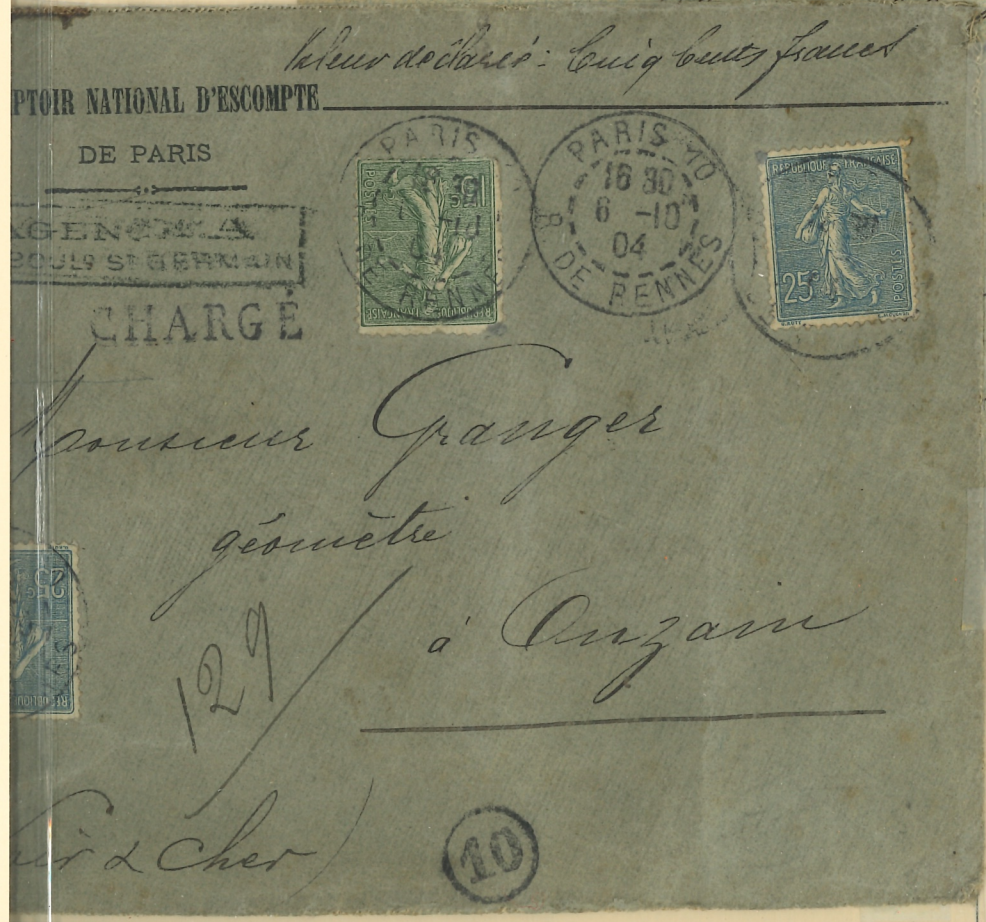 Valeur déclarée: Cinq Cents francs
PTOIR NATIONAL D'ESCOMPTE
DE PARIS
AGENCE A
BOULD ST GERMAIN
CHARGÉ
PARIS
RENNES
15c
POSTES
REPUBLIQUE FRANÇAISE
PARIS 10
16 30
6 -10
04
R. DE RENNES
REPUBLIQUE FRANÇAISE
25c
POSTES
Monsieur Granger
géomètre
à Onzain
25c
REPUBLIQUE
129
oir & Cher)
10